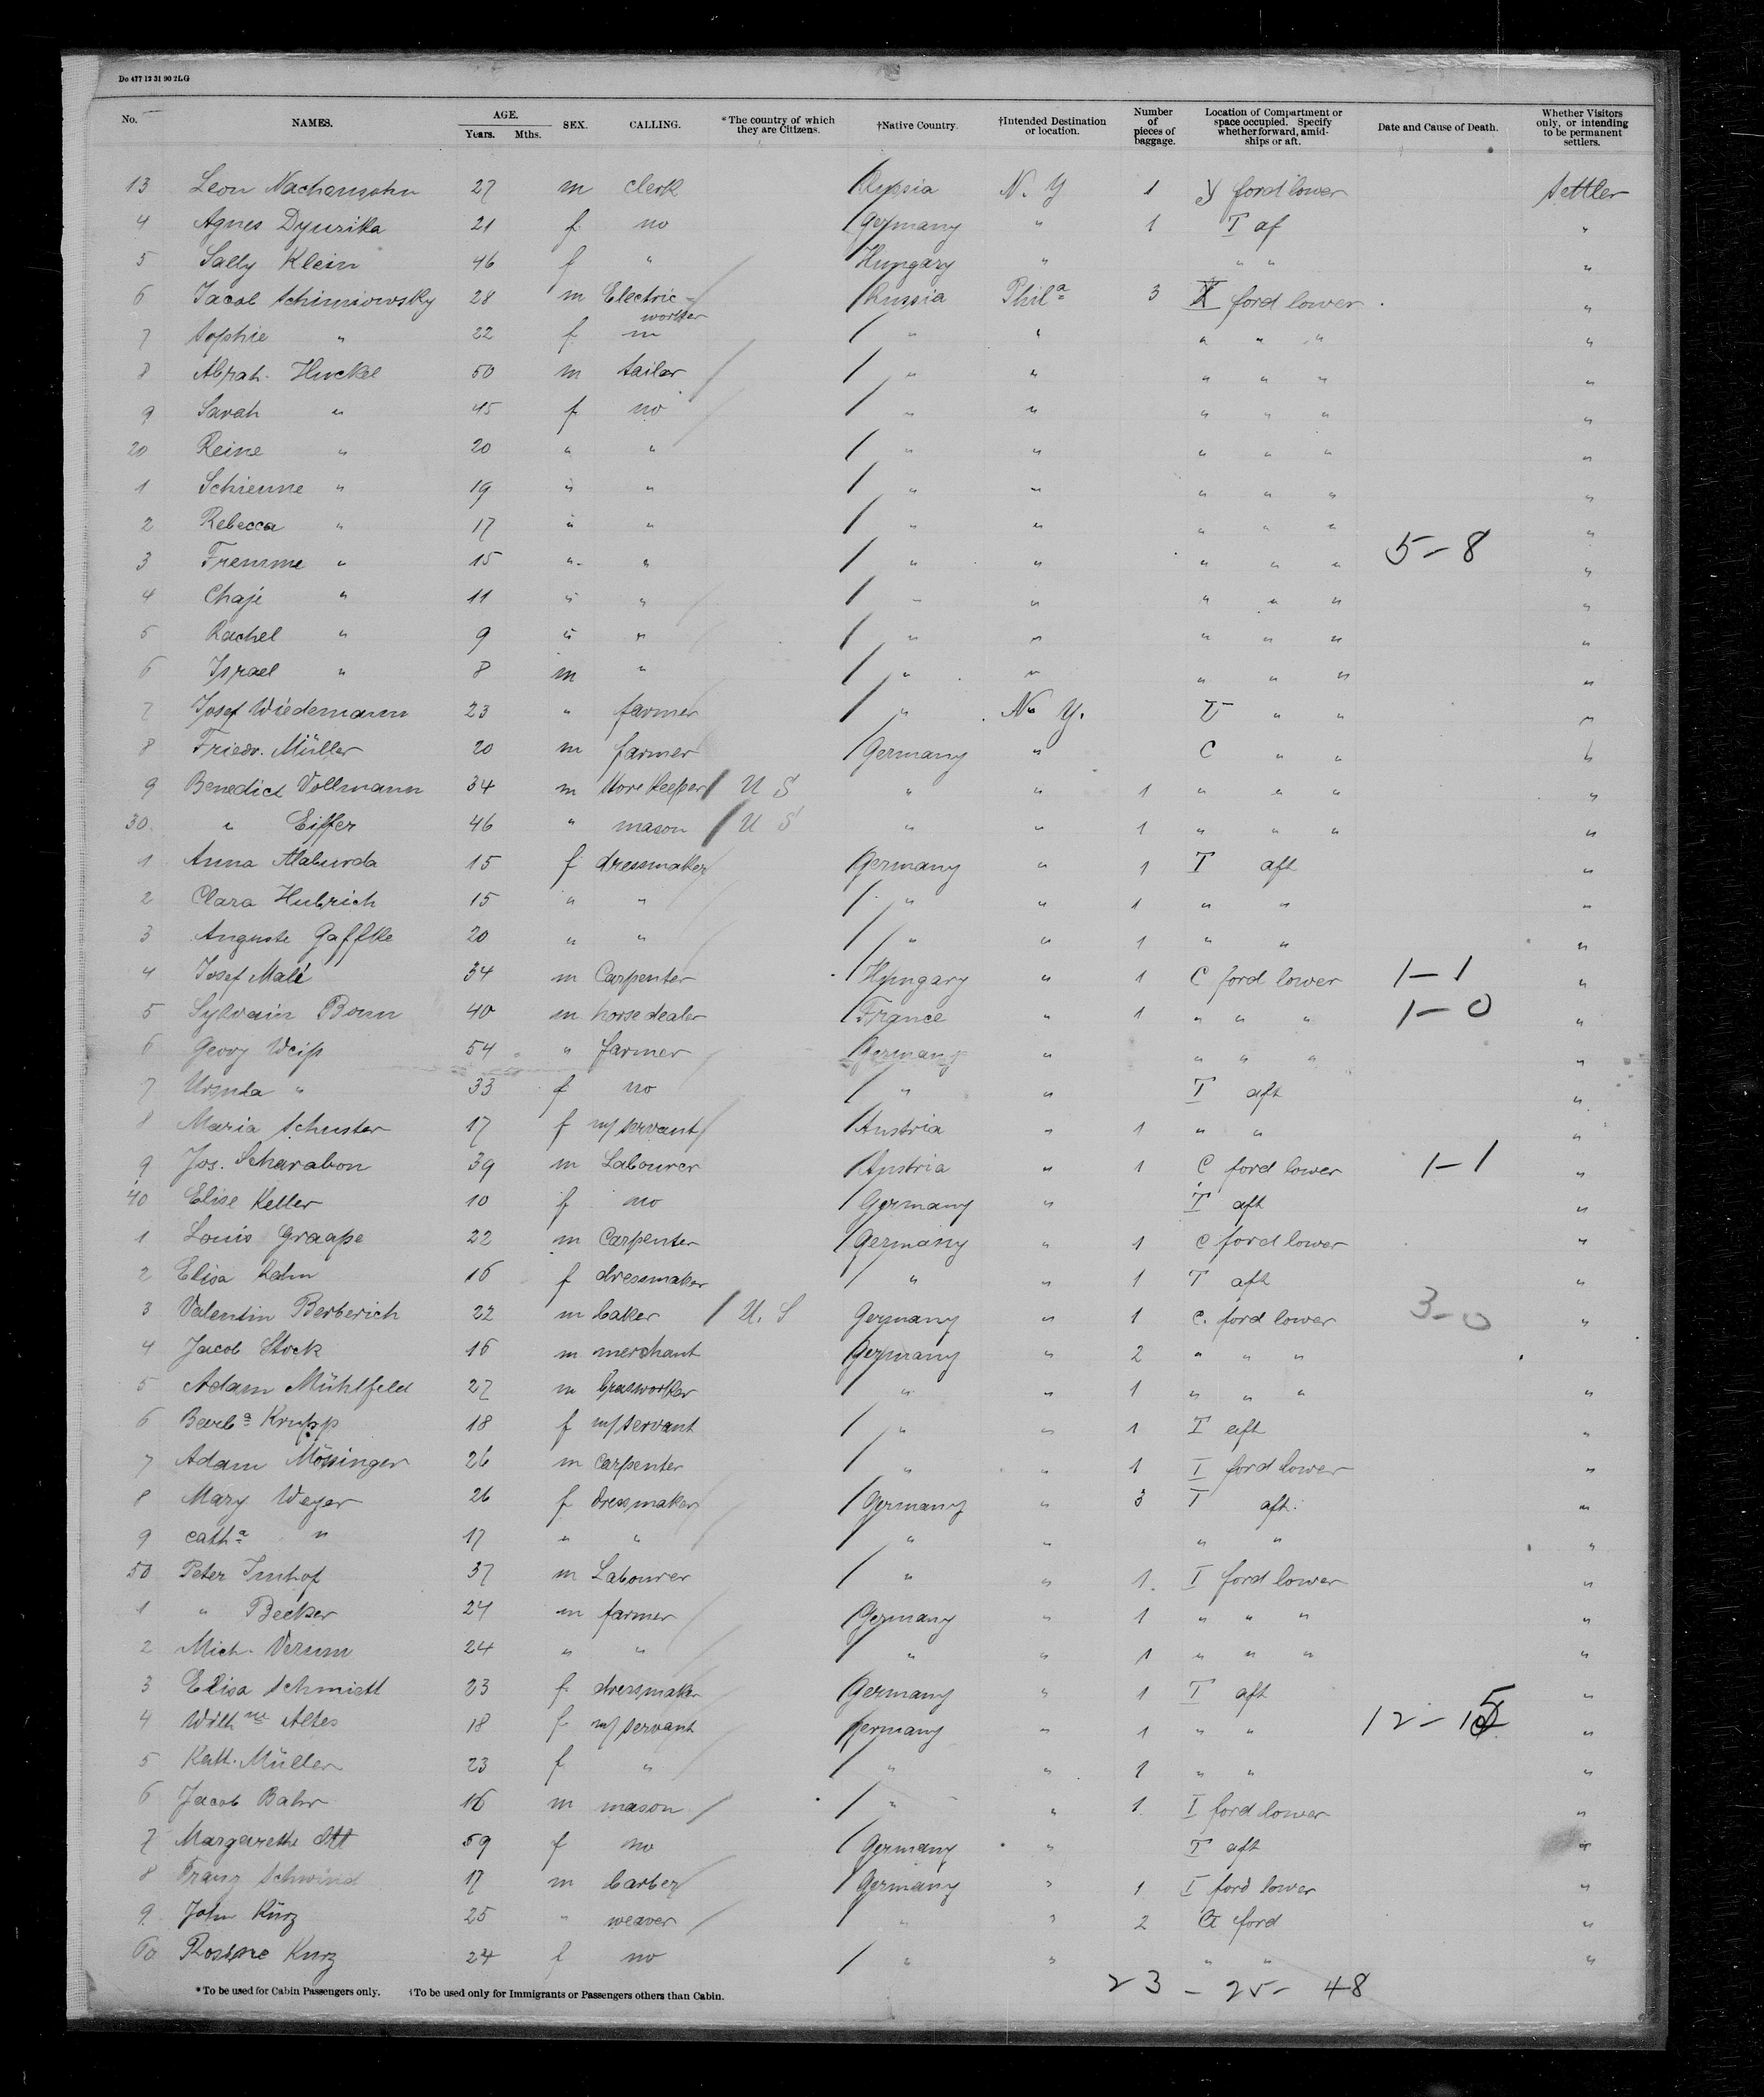 Do 477 12 31 90 2LG
No. NAMES. AGE. Years. Mths. SEX. CALLING. *The country of which they are Citizens. †Native Country. †Intended Destination or location. Number of pieces of baggage. Location of Compartment or space occupied. Specify whether forward, amidships or aft. Date and Cause of Death. Whether Visitors only, or intending to be permanent settlers.
13 Leon Nachemsohn 27 m clerk Russia N. Y 1 ford lower settler
4 Agnes Dyurika 21 f no Germany " 1 T af "
5 Sally Klein 46 f " Hungary " " " "
6 Jacob Schimiowsky 28 m Electric = worker Russia Phila 3 ford lower "
7 Sophie " 22 f " " " " " "
8 Abrah. Huckel 50 m tailor " " " " " "
9 Sarah " 45 f no " " " " " "
20 Reine " 20 " " " " " " " "
1 Schienne " 19 " " " " " " " "
2 Rebecca " 17 " " " " " " " "
3 Fremme " 15 " " " " " " " 5-8 "
4 Chaje " 11 " " " " " " " "
5 Rachel " 9 " " " " " " " "
6 Israel " 8 m " " " " " " "
7 Josef Wiedemann 23 " farmer " N. Y. " " "
8 Friedr. Müller 20 m farmer Germany " C " " "
9 Benedict Vollmann 34 m Storekeeper U S " " 1 " " " "
30 " Eiffer 46 " mason U S " " 1 " " " "
1 Anna Alaburda 15 f dressmaker Germany " 1 T aft "
2 Clara Hubrich 15 " " " " 1 " " "
3 Auguste Gaffke 20 " " " " 1 " " "
4 Josef Malé 34 m Carpenter Hungary " 1 C ford lower 1-1 "
5 Sylvain Bonn 40 m horsedealer France " 1 " " " 1-0 "
6 Georg Weiß 54 " farmer Germany " " " " "
7 Ursula " 33 f no " " T aft "
8 Maria Schuster 17 f m/servant Austria " 1 " " "
9 Jos. Scharabon 39 m Labourer Austria " 1 C ford lower 1-1 "
40 Elise Keller 10 f no Germany " T aft "
1 Louis Graape 22 m Carpenter Germany " 1 C ford lower "
2 Elisa Kahn 16 f dressmaker " " 1 T aft "
3 Valentin Berberich 22 m baker U. S Germany " 1 C. ford lower 3-0 "
4 Jacob Stock 16 m merchant Germany " 2 " " "
5 Adam Mühlfeld 27 m brasworker " " 1 " " " "
6 Barba Krupp 18 f m/servant " " 1 T aft "
7 Adam Mössinger 26 m carpenter " " 1 I ford lower "
8 Mary Weyer 26 f dressmaker Germany " 3 T aft. "
9 Catha " 17 " " " " " " "
50 Peter Imhof 37 m Labourer " " 1. I ford lower "
1 " Becker 24 m farmer Germany " 1 " " " "
2 Mich. Verum 24 " " " " 1 " " " "
3 Elisa Schmidt 23 f dressmaker Germany " 1 T aft "
4 Wilhne Altes 18 f m/servant Germany " 1 " " 12-15 "
5 Kath. Müller 23 f " " " 1 " " "
6 Jacob Bahr 16 m mason " " 1. I ford lower "
7 Margarethe Ott 59 f no Germany " T aft "
8 Franz Schwind 17 m barber Germany " 1 I ford lower "
9 John Kürz 25 " weaver " " 2 ford "
60 Rosine Kurz 24 f no " " " " "
*To be used for Cabin Passengers only. †To be used only for Immigrants or Passengers others than Cabin.
23 - 25 - 48